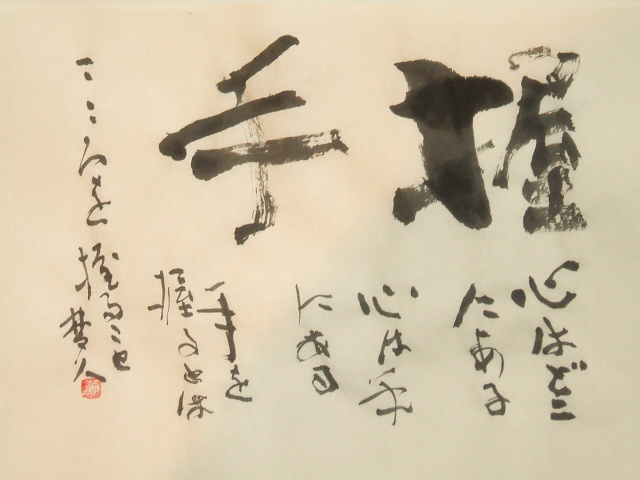 握手
心はどこ
にある
心は手
にある
手を
握るとは
こころを
握ること
夢人